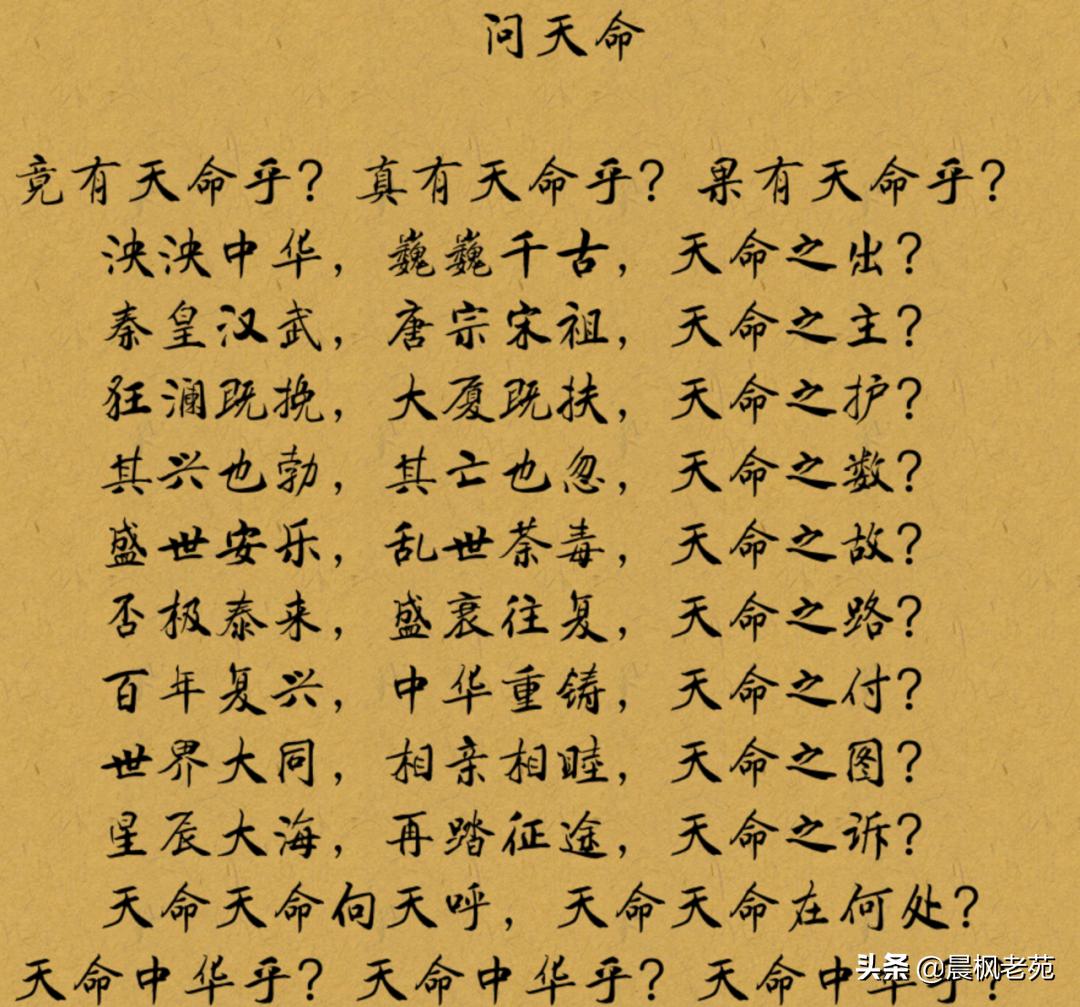 问天命
竟有天命乎？ 真有天命乎？ 果有天命乎？
泱泱中华，巍巍千古，天命之出？
秦皇汉武，唐宗宋祖，天命之主？
狂澜既挽，大厦既扶，天命之护？
其兴也勃，其亡也忽，天命之数？
盛世安乐，乱世荼毒，天命之故？
否极泰来，盛衰往复，天命之路？
百年复兴，中华重铸，天命之付？
世界大同，相亲相睦，天命之图？
星辰大海，再踏征途，天命之诉？
天命天命向天呼，天命天命在何处？
天命中华乎？ 天命中华乎？ 天命中华乎？
头条 @晨枫老苑